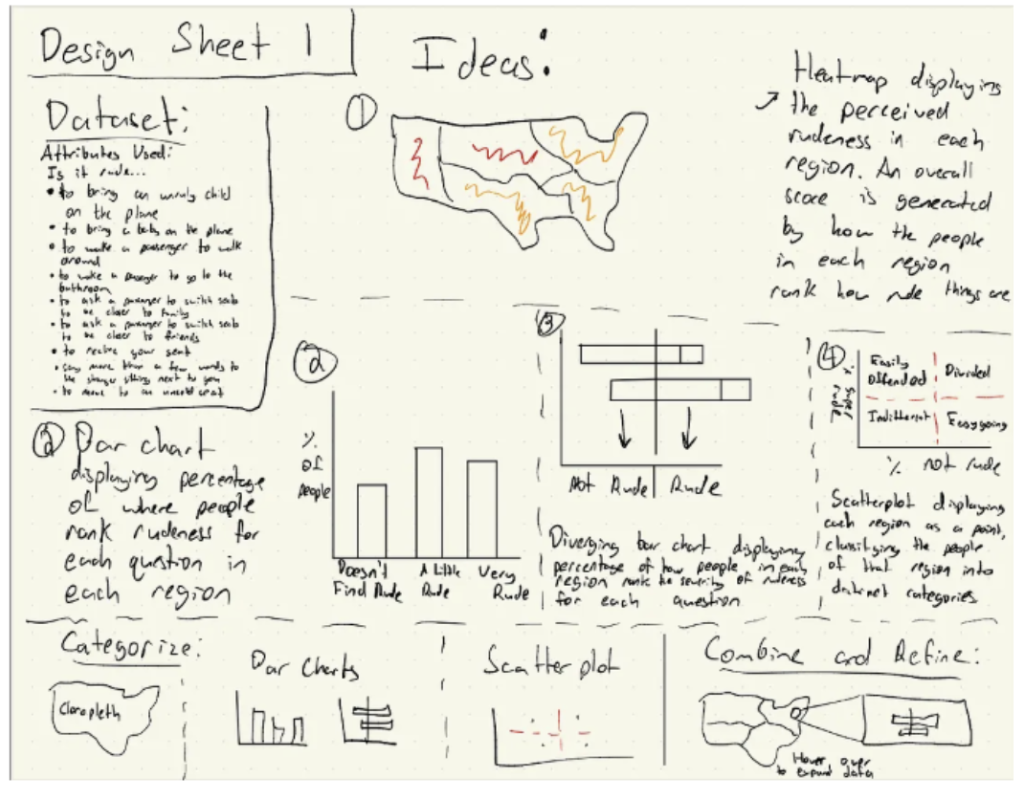 Design Sheet 1
Dataset:
Attributes Used:
Is it rude...
• to bring an unruly child
on the plane
• to bring a baby on the plane
• to wake a passenger to walk
around
• to wake a passenger to go to the
bathroom
• to ask a passenger to switch seats
to be closer to family
• to ask a passenger to switch seats
to be closer to friends
• to recline your seat
• say more than a few words to
the stranger sitting next to you
• to move to an unsold seat
Ideas:
①
Heatmap displaying
the perceived
rudeness in each
region. An overall
score is generated
by how the people
in each region
rank how rude things are
② Bar chart
displaying percentage
of where people
rank rudeness for
each question in
each region
②
% of people
Doesn't Find Rude
A Little Rude
Very Rude
③
Not Rude | Rude
Diverging bar chart displaying
percentage of how people in each
region rank the severity of rudeness
for each question
④
% super rude
Easily Offended
Divided
Indifferent
Easygoing
% not rude
Scatterplot displaying
each region as a point,
classifying the people
of that region into
distinct categories
Categorize:
Cloropleth
Bar Charts
Scatterplot
Combine and Refine:
Hover over
to expand data